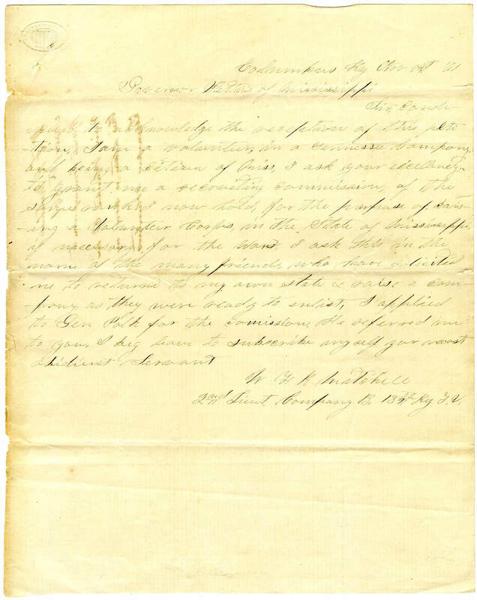 Columbus Ky Nov 1st 61
Governor Pettus of Mississippi
Sir
to acknowledge the reception of this peti
tion, I am a volunteer in a Tennessee Company
and being a citizen of Miss, I ask your excellency
to grant me a recruiting commission, of the
same rank I now hold, for the purpose of rais
ing a Volunteer Corps, in the State of Mississippi
if necessary for the War I ask this in the
name of the many friends who have solicited
me to return to my own state & raise a com
pany as they were ready to enlist, I applied
to Gen Polk for the comission, He refered me
to you. I beg leave to subscribe myself your most
obedient Servant
W H K Mitchell
2nd Lieut. Company B. 13th Reg T.V.